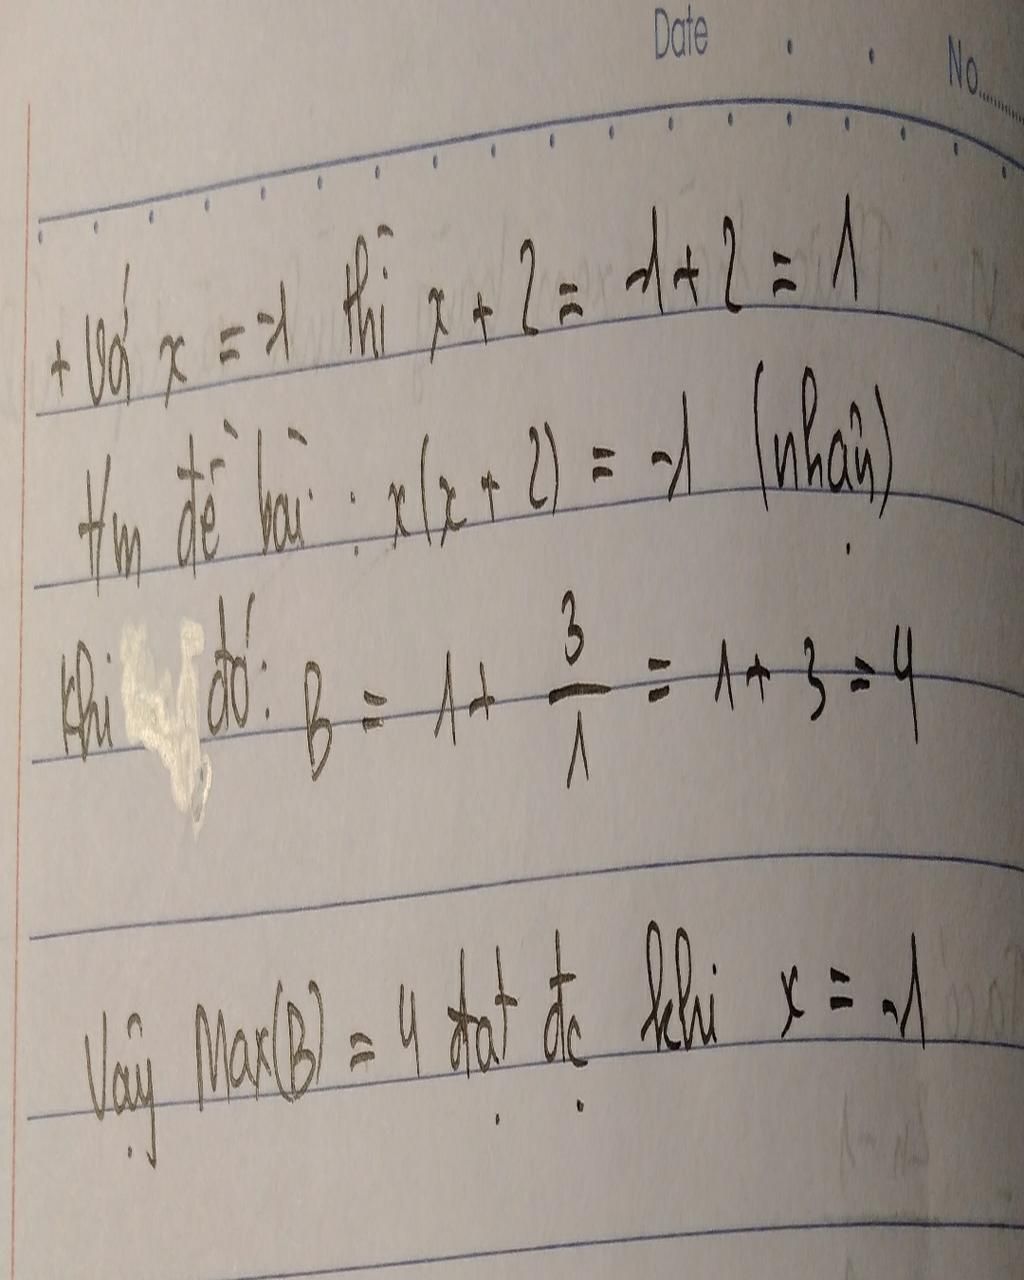 Date . . No.........
+ Với x = -1 thì x + 2 = -1 + 2 = 1
đề bài : x(x + 2) = -1 (nhận)
Khi đó: B = 1 + 3/1 = 1 + 3 = 4
Vậy Max(B) = 4 đạt đc khi x = -1